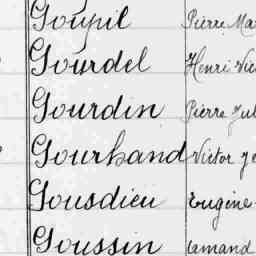 Goupil Pierre Ma
Gourdel Henri Vic
Gourdin Pierre Jul
Gourhand Victor Je
Gousdieu Eugène
Goussin Amand